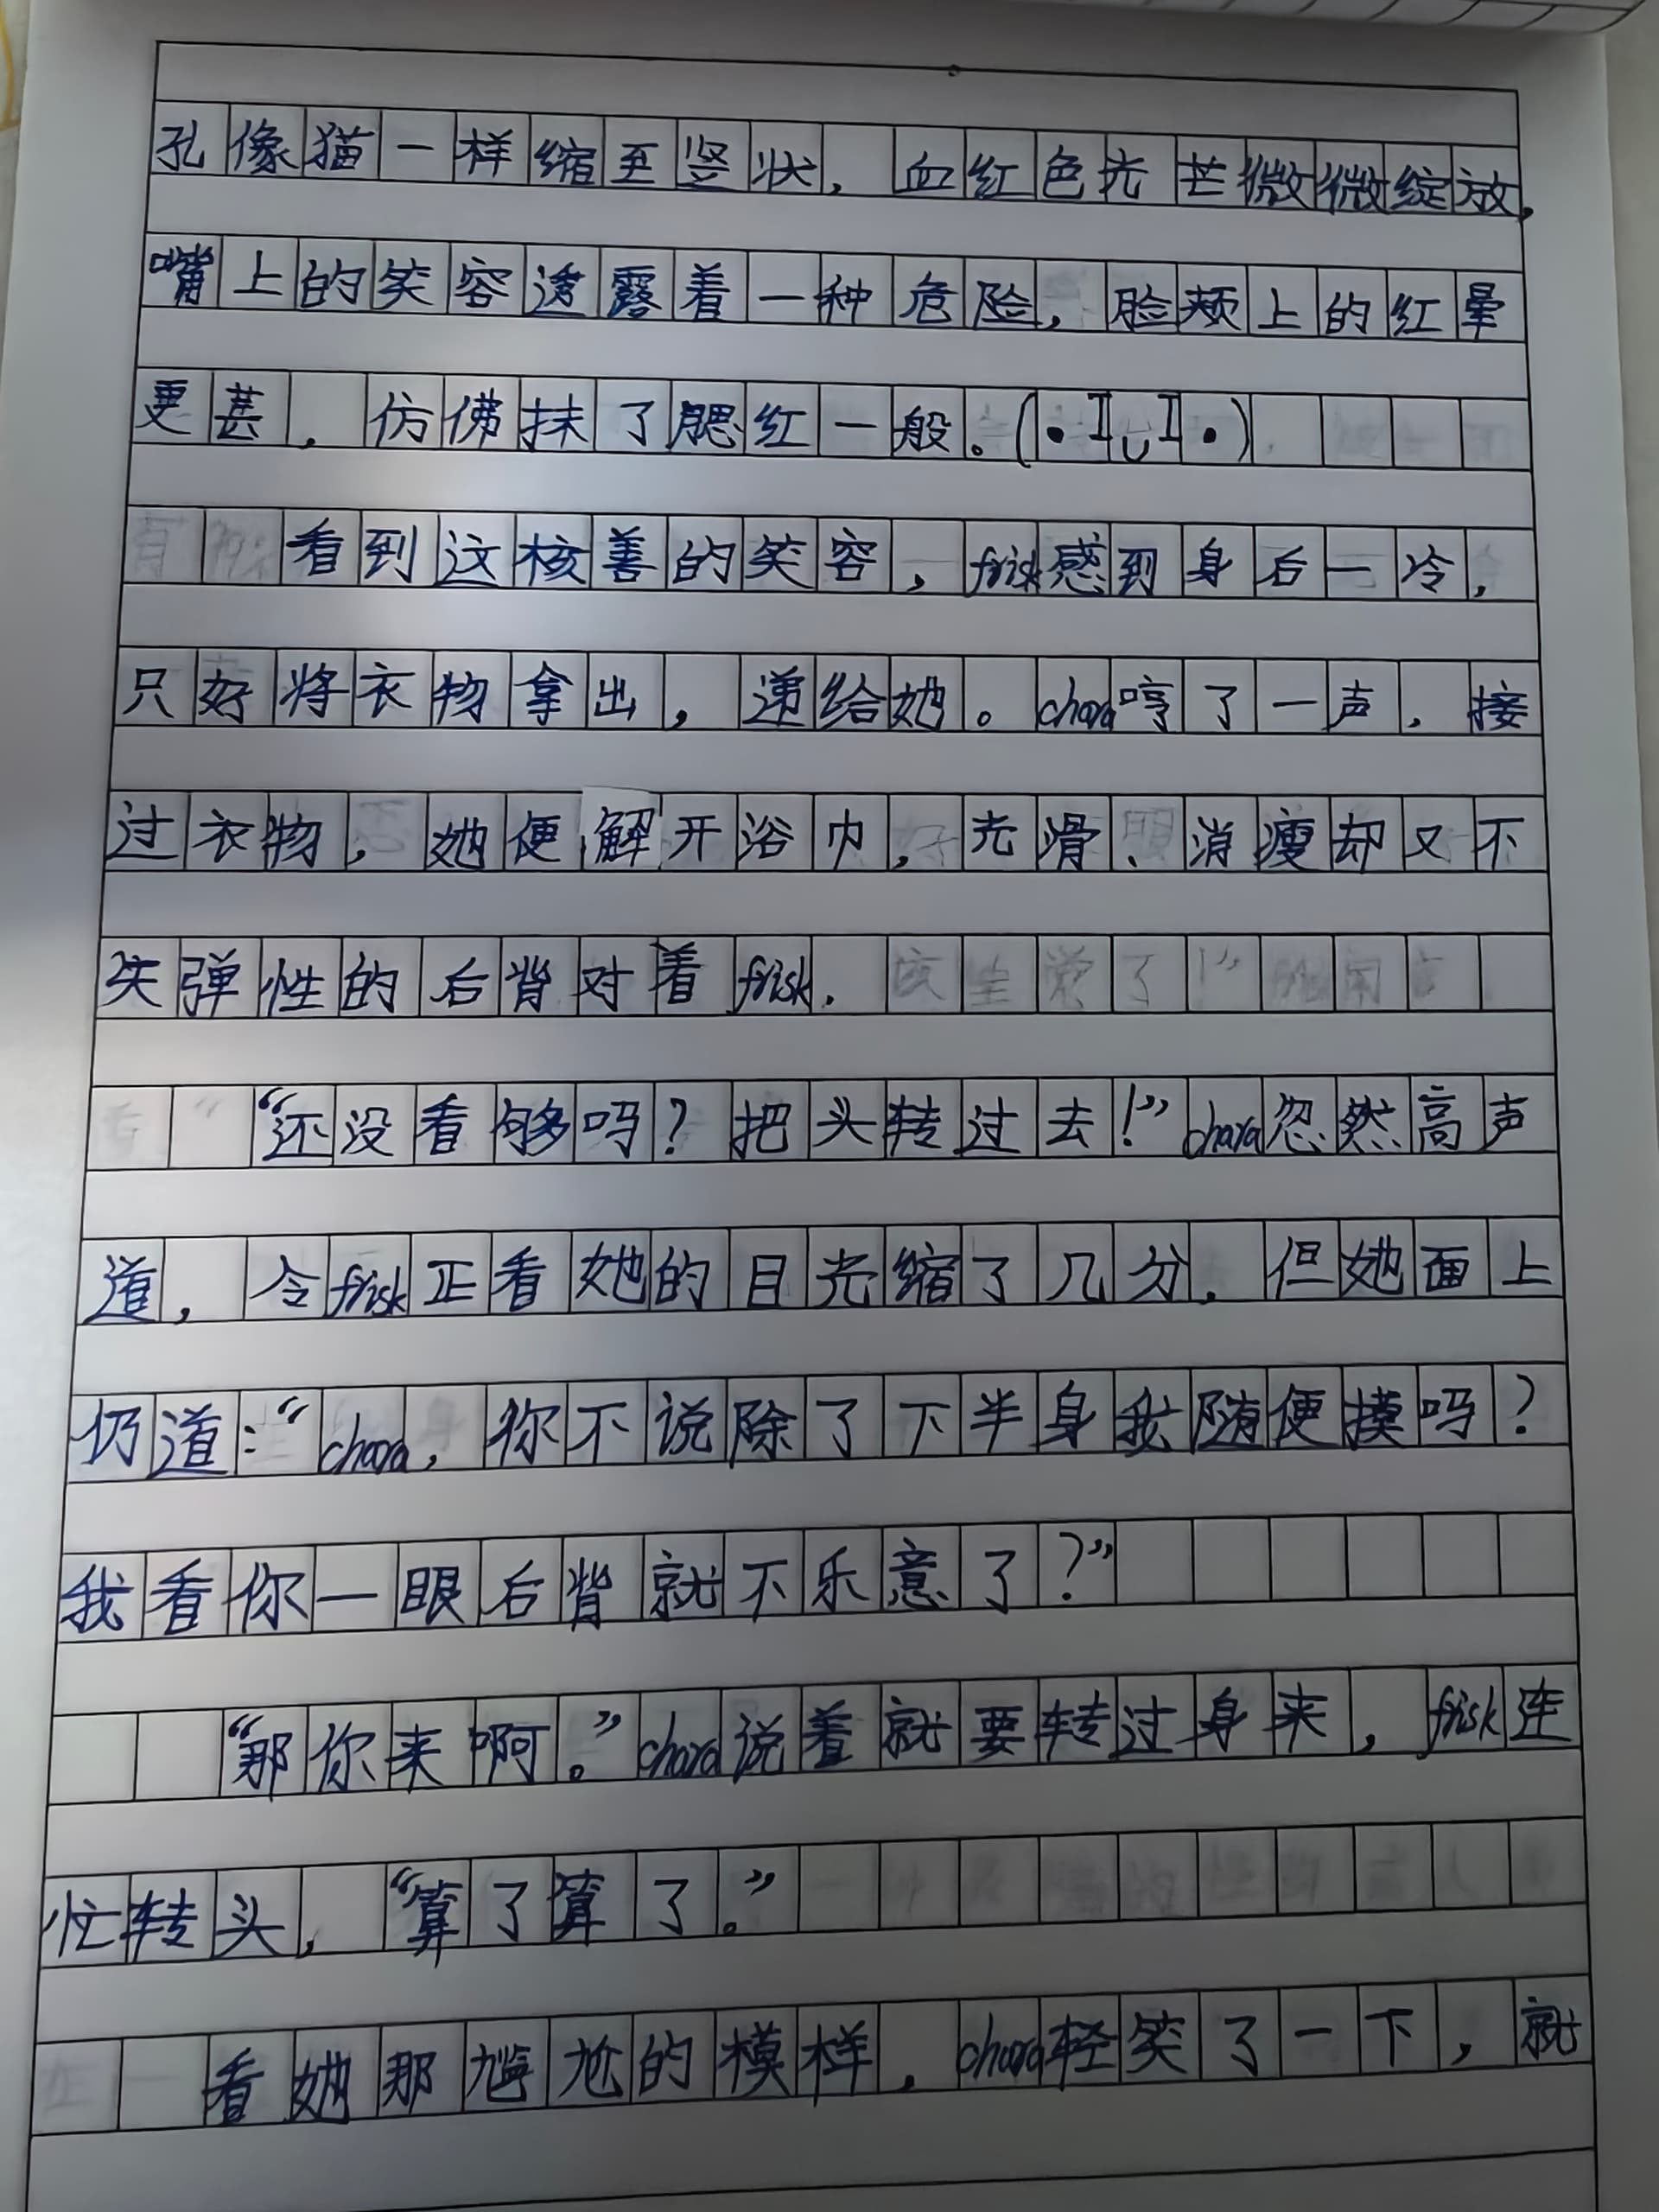 孔像猫一样缩至竖状，血红色光芒微微绽放，
嘴上的笑容透露着一种危险，脸颊上的红晕
更甚，仿佛抹了腮红一般。(•I∪I•)
看到这核善的笑容，frisk感到身后一冷，
只好将衣物拿出，递给她。chara哼了一声，接
过衣物，她便解开浴巾，光滑、消瘦却又不
失弹性的后背对着frisk.
“还没看够吗？把头转过去！”chara忽然高声
道，令frisk正看她的目光缩了几分，但她面上
仍道：“chara，你不说除了下半身我随便摸吗？
我看你一眼后背就不乐意了？”
“那你来啊。”chara说着就要转过身来，frisk连
忙转头，“算了算了。”
看她那尴尬的模样，chara轻笑了一下，就